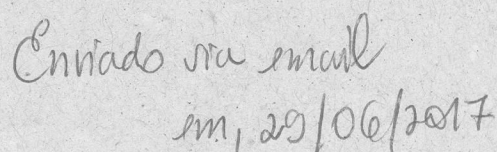 Enviado via email
em, 29/06/2017